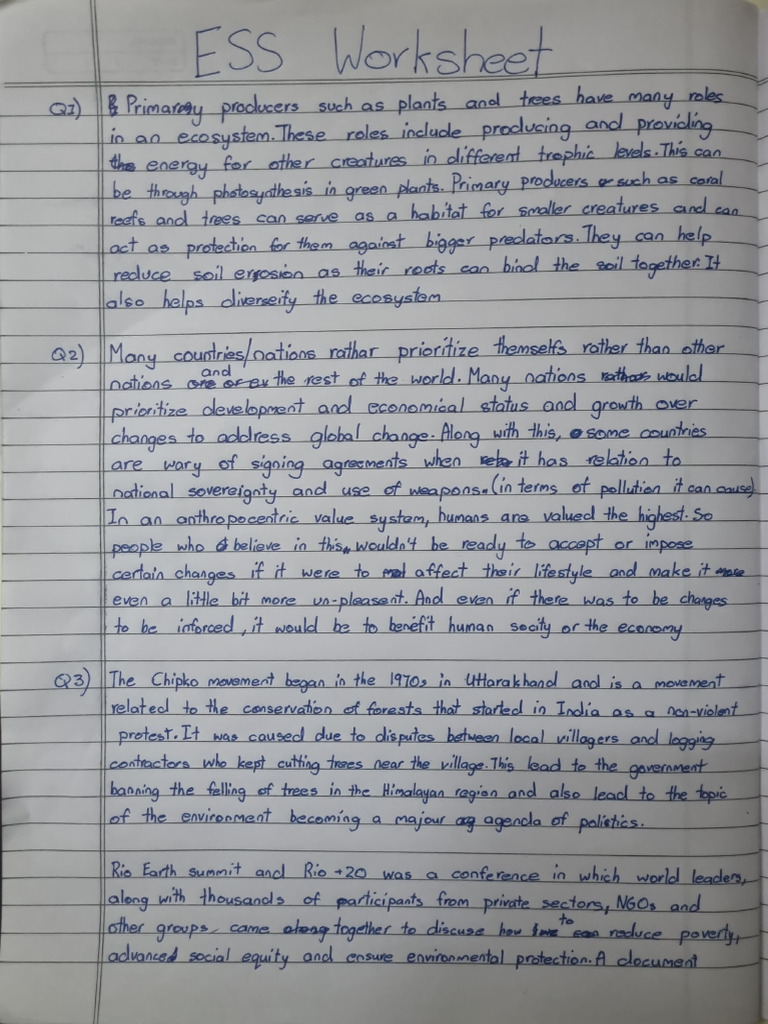 ESS Worksheet
Q1) Primary producers such as plants and trees have many roles
in an ecosystem. These roles include producing and providing
energy for other creatures in different trophic levels. This can
be through photosynthesis in green plants. Primary producers such as coral
reefs and trees can serve as a habitat for smaller creatures and can
act as protection for them against bigger predators. They can help
reduce soil errosion as their roots can bind the soil together. It
also helps diverseify the ecosystem
Q2) Many countries/nations rathar prioritize themselfs rather than other
nations and the rest of the world. Many nations would
prioritize development and economical status and growth over
changes to address global change. Along with this, some countries
are wary of signing agreements when it has relation to
national sovereignty and use of weapons. (in terms of pollution it can cause)
In an anthropocentric value system, humans are valued the highest. So
people who believe in this, wouldn't be ready to accept or impose
certain changes if it were to affect their lifestyle and make it
even a little bit more un-pleasent. And even if there was to be changes
to be inforced, it would be to benefit human socity or the economy
Q3) The Chipko movement began in the 1970s in Uttarakhand and is a movement
related to the conservation of forests that started in India as a non-violent
protest. It was caused due to disputes between local villagers and logging
contractors who kept cutting trees near the village. This lead to the government
banning the felling of trees in the Himalayan region and also lead to the topic
of the environment becoming a majour agenda of polistics.
Rio Earth summit and Rio +20 was a conference in which world leaders,
along with thousands of participants from private sectors, NGOs and
other groups, came together to discuss how to reduce poverty,
advance social equity and ensure environmental protection. A document